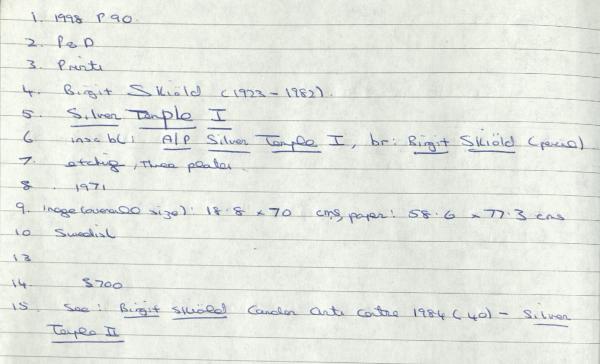 1. 1998 P 90.
2. P&D
3. Prints
4. Birgit Skiöld (1923-1982).
5. Silver Temple I
6 insc bl: A/P Silver Temple I, br: Birgit Skiöld (pencil)
7. etching, three plates
8. 1971
9. image (overall size): 18.8 x 70 cms, paper: 58.6 x 77.3 cms
10 Swedish
13
14. 5700
15. See: Birgit Skiöld Camden Arts Centre 1984 (40) - Silver
Temple II